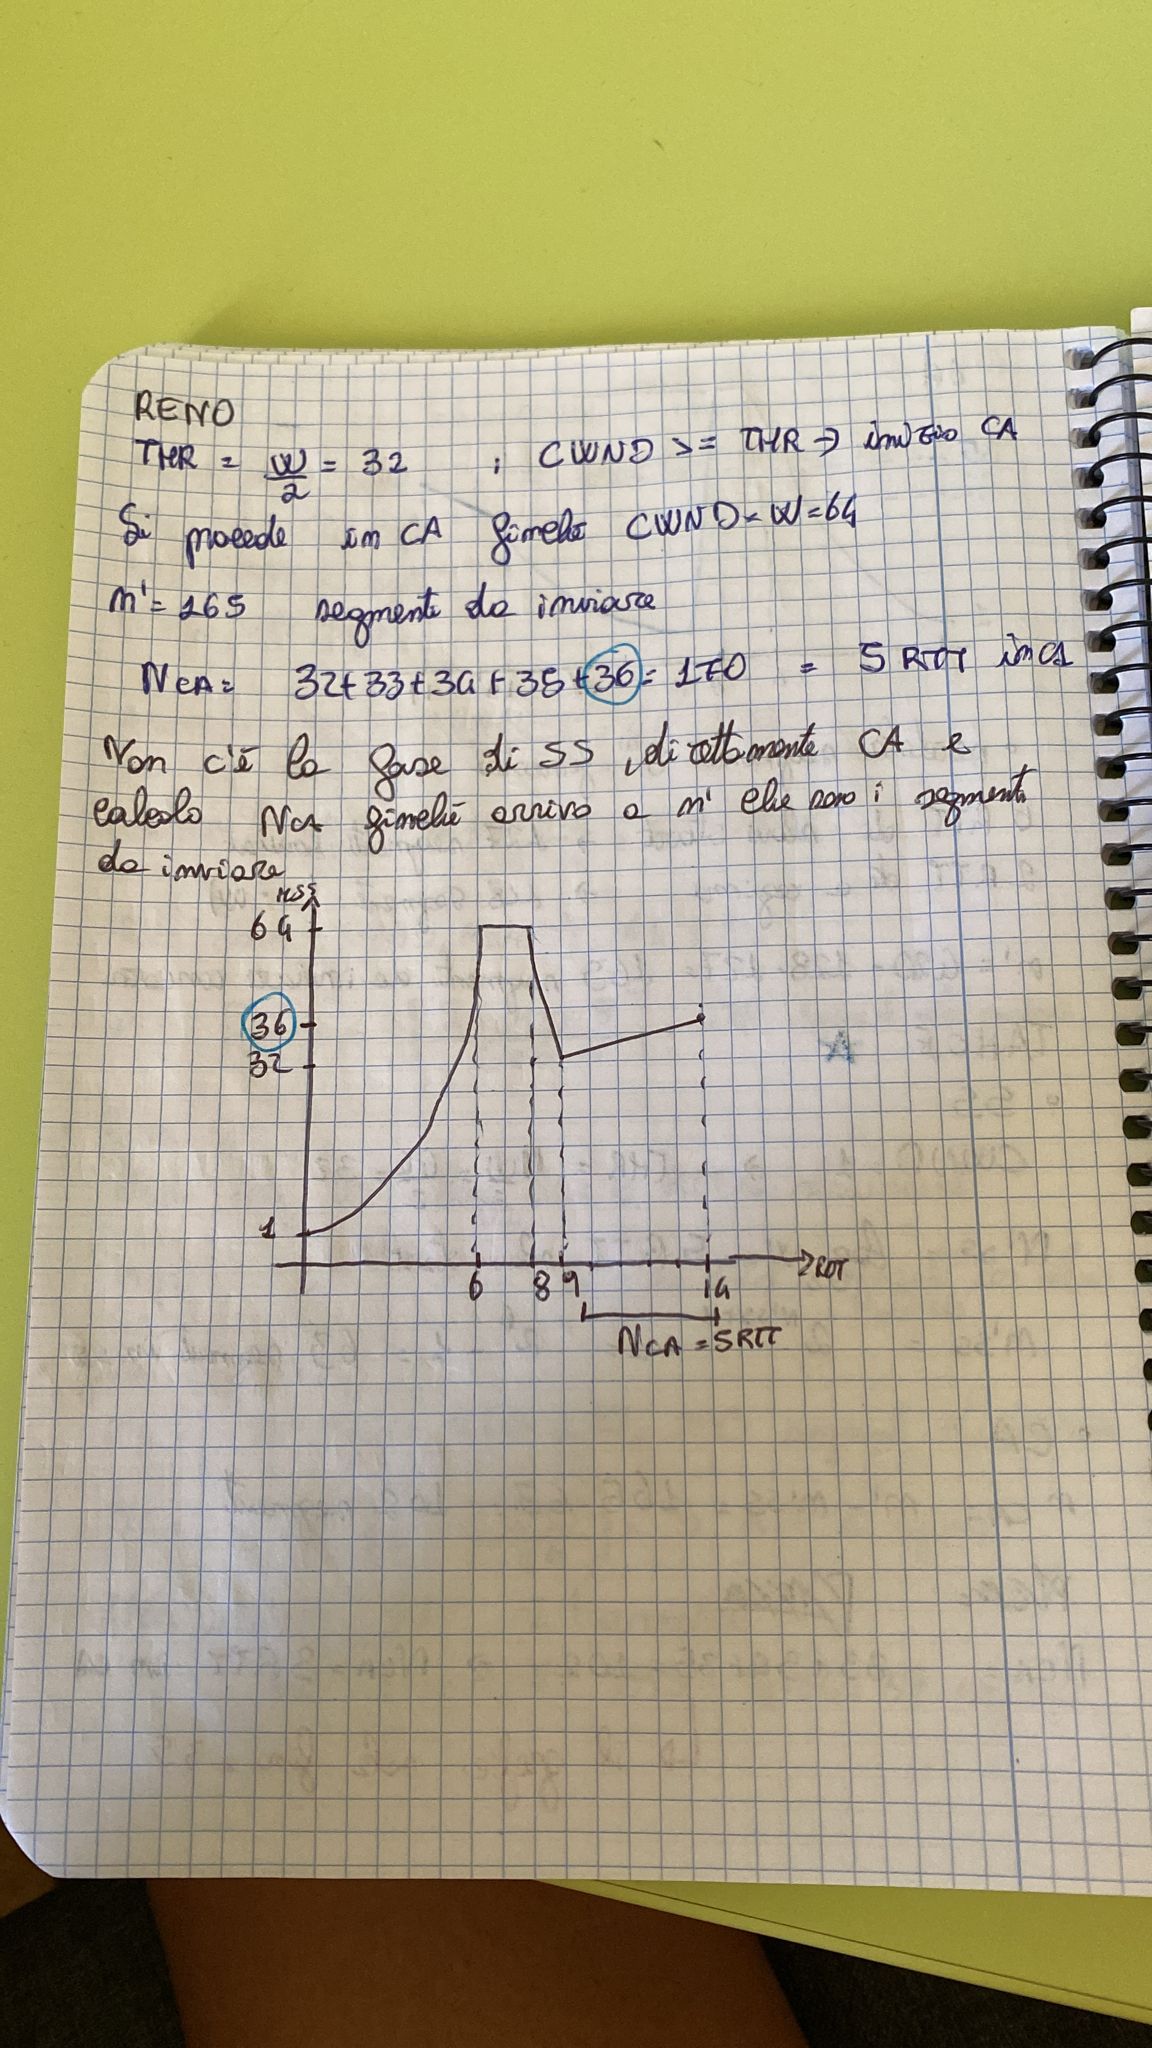 RENO
THR = W/2 = 32 ; CWND >= THR → inizio CA
Si procede in CA finché CWND = W = 64
m' = 165 segmenti da inviare
NCA = 32+33+34+35+36 = 170 = 5 RTT in CA
Non c'è la fase di SS, direttamente CA e
calcolo NCA finché arrivo a m' che sono i segmenti
da inviare
MSS
64
36
32
A
1
6 8 9 14 RTT
NCA = 5RTT